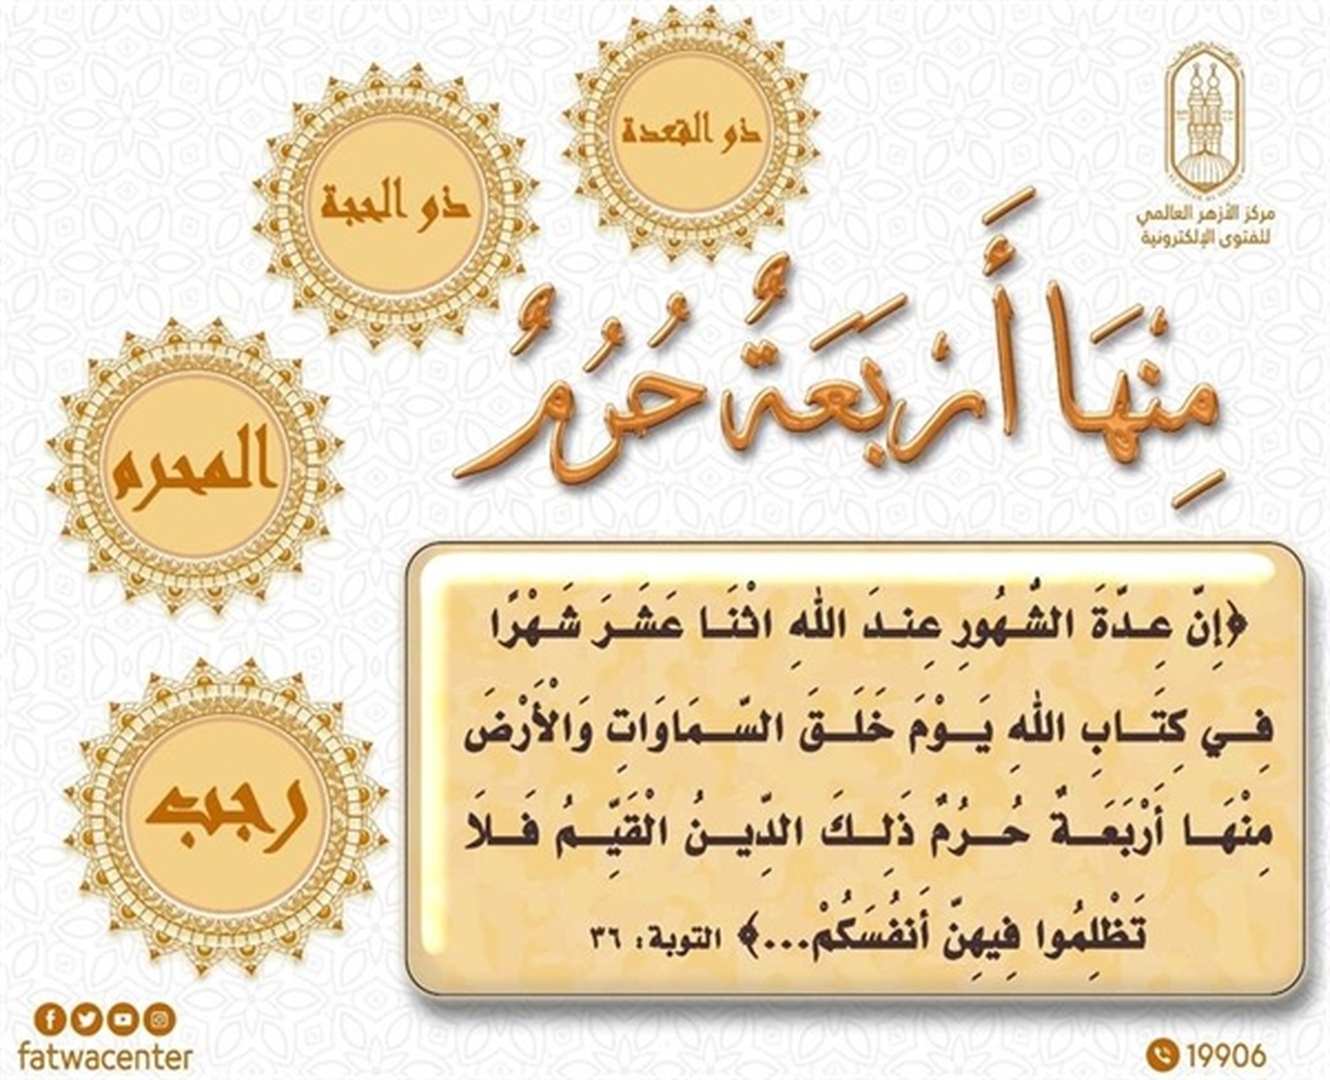 مركز الأزهر العالمي
للفتوى الإلكترونية
ذو القعدة
ذو الحجة
المحرم
رجب
مِنْهَا أَرْبَعَةٌ حُرُمٌ
﴿إِنّ عِـدّةَ الشُّـهُورِ عِنـدَ اللهِ اثْنَـا عَشَـرَ شَـهْرًا
فِـي كِتَـابِ اللهِ يَـوْمَ خَلَـقَ السّـمَاوَاتِ وَالْأَرْضَ
مِنْهَـا أَرْبَعَـةٌ حُـرُمٌ ذَلِـكَ الدِّيـنُ الْقَيِّـمُ فَـلَا
تَظْلِمُوا فِيهِنّ أَنفُسَكُمْ...﴾ التوبة: ٣٦
fatwacenter
19906